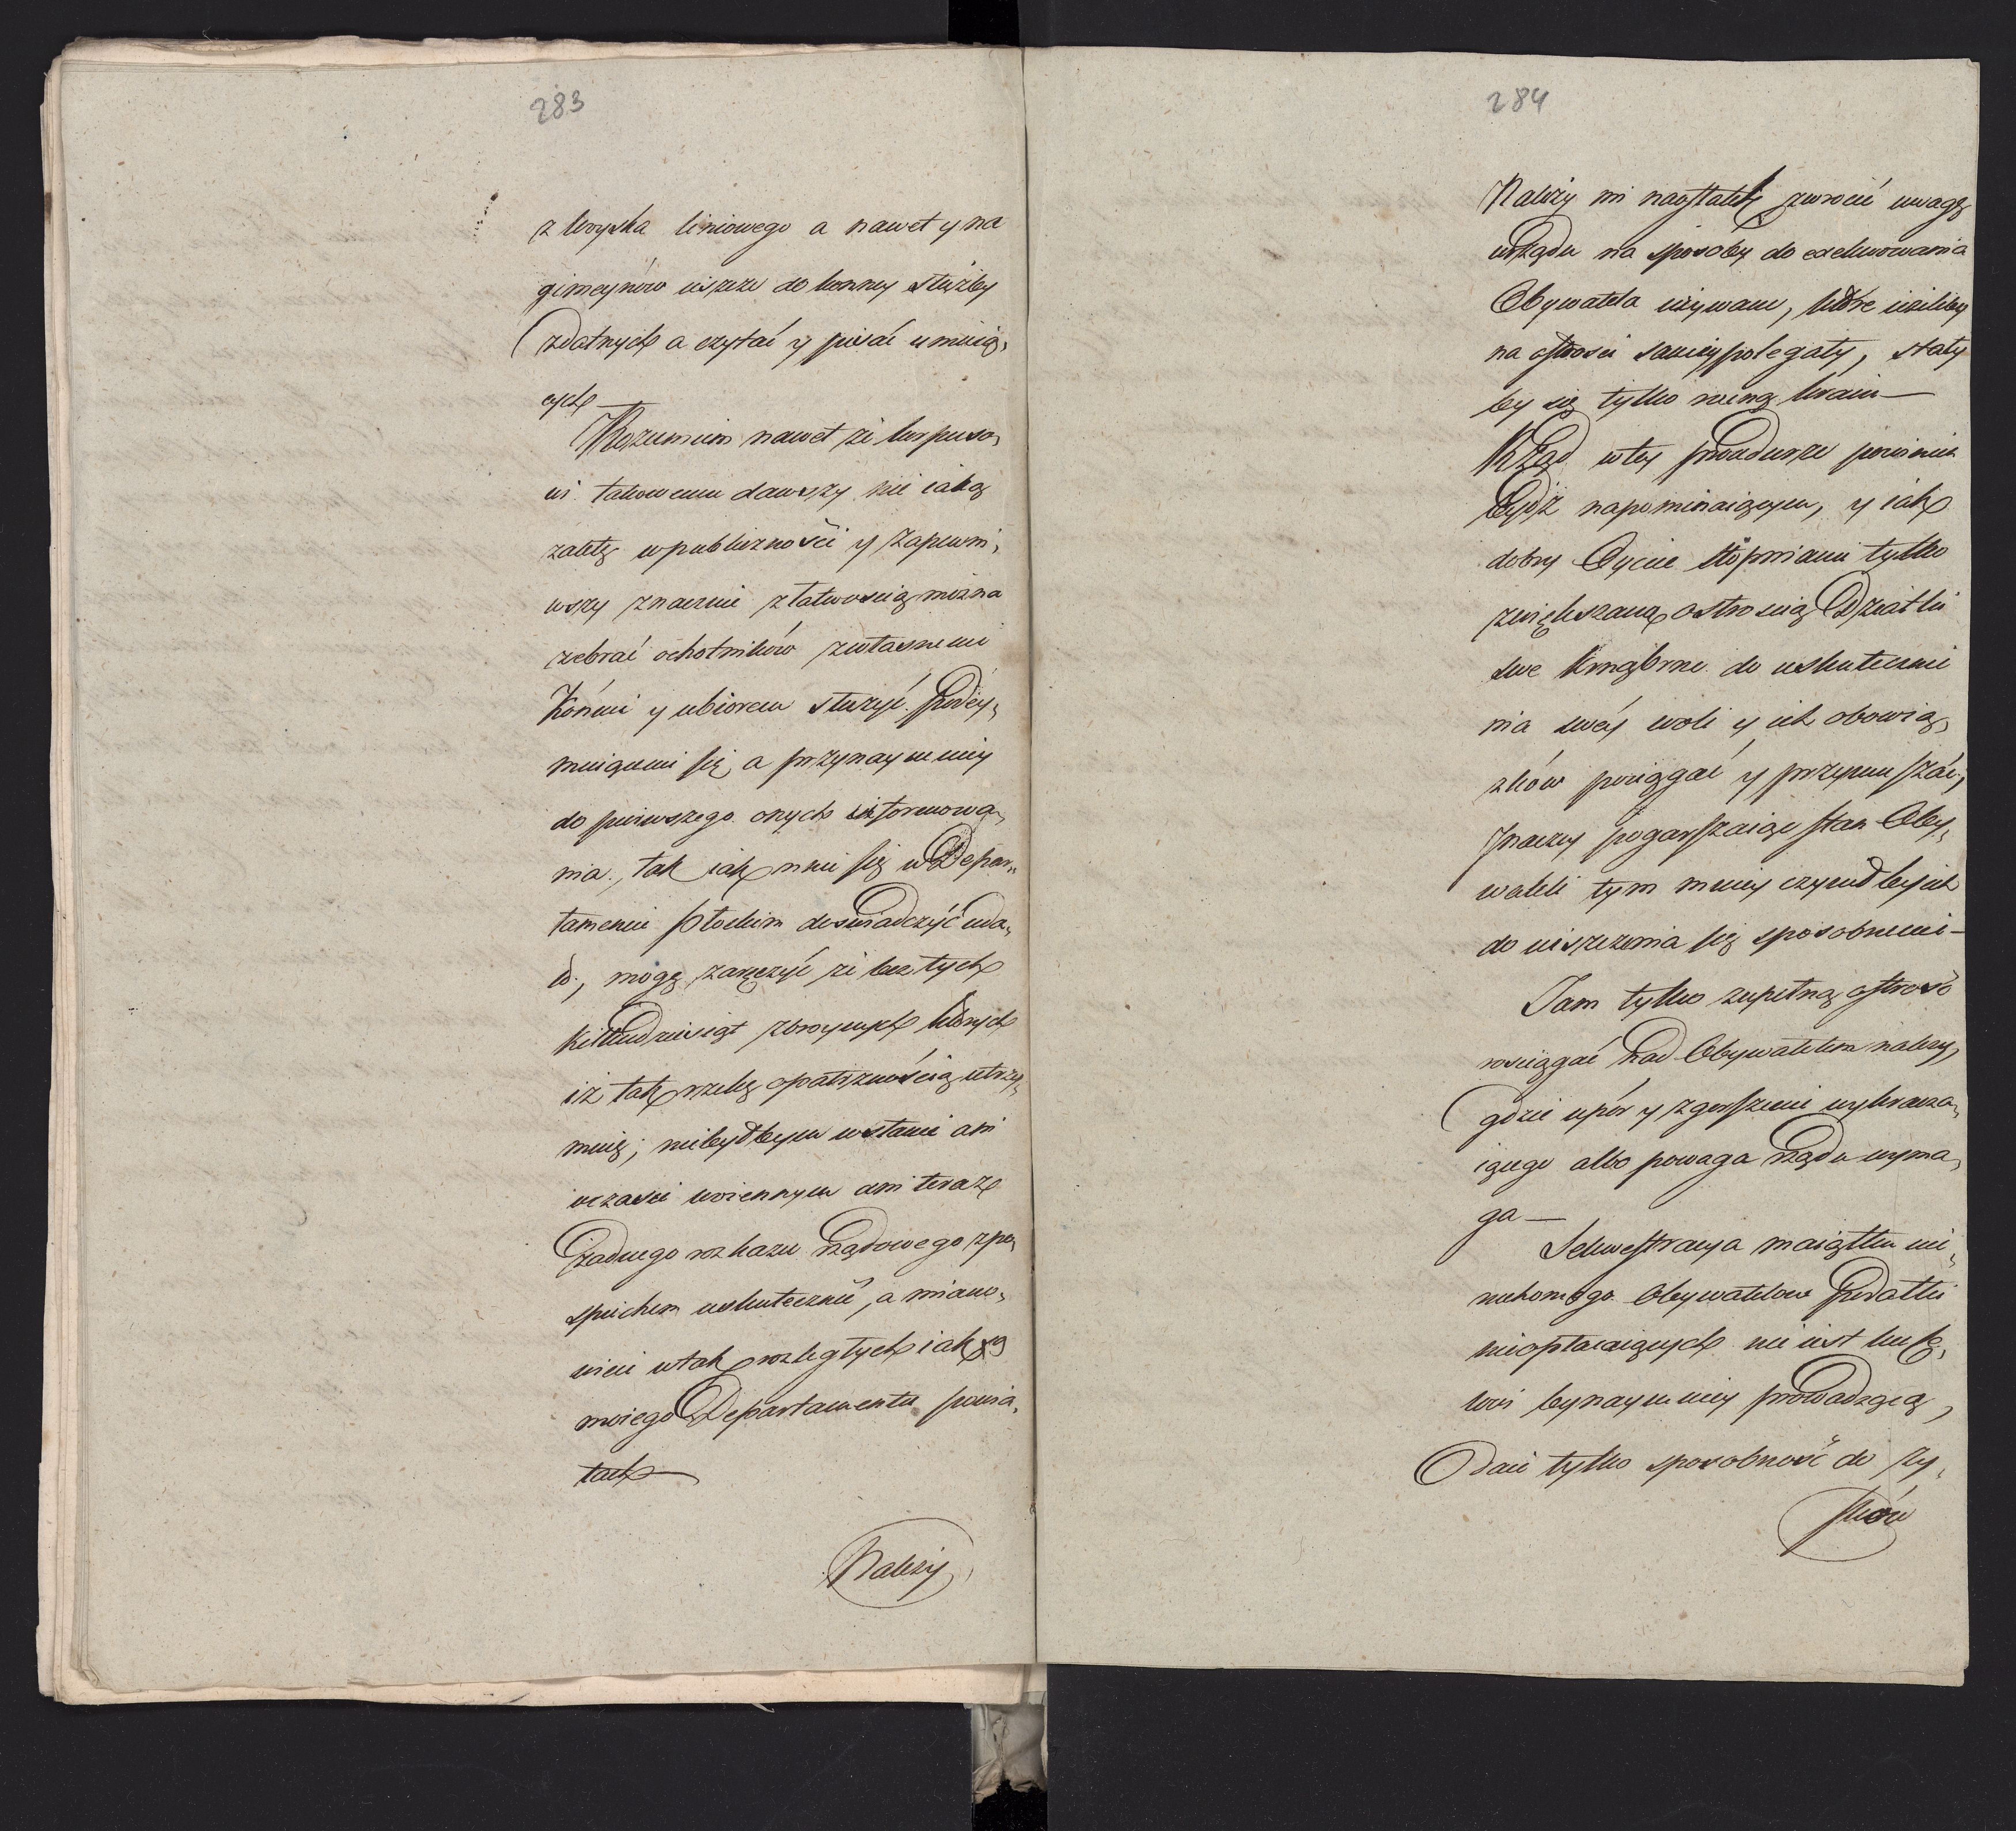 283
z woyska liniowego a nawet y na
gimeynów ieszcze do konney służby
zdatnych a czytać y pisać umieią,
cych
Rozumiem nawet że korpuso,
wi takowemu dawszy nie iaką
zaletę w publiczności y zapewni,
wszy znacznie z łatwością można
zebrać ochotników z własnemi
Końmi y ubiorem służyć podey,
muiącemi się, a przynaymniey
do pierwszego onych uformowa,
nia, tak iak mnie się w Depar,,
tamencie Płockim doświadczyć uda,
ło, mogę zaręczyć że bez tych
kilkudziesiąt zbroynych których
iż tak rzekę opatrznością utrzy,
muię; niebyłbym w stanie ani
w czasie woiennym ani teraz
żadnego rozkazu rządowego z po,
spiechem uskutecznić, a miano,
wicie w tak rozległych iak są
moiego Departamentu powia,
tach
Należy
284
Należy mi naostatek zwrócić uwagę
rządu na sposoby do exekwowania
Obywatela używane, które ieżeliby
na ostrości samey polegały, stały
by się tylko ruiną kraiu
Rząd w tey procedurze powinien
bydź napominaiącym, y iak
dobry Oyciec stopniami tylko
zwiększaną ostrością Dziatki
swe krnąbrne do uskutecznie
nia swey woli y ich obowią,
zków pociągać y przymuszać,
inaczey pogarszaiąc stan Oby,
wateli tym mniey czyniłby ich
do uiszczenia się sposobnemi
Tam tylko zupełną ostrość
rosciągać nad Obywatelem należy,
gdzie upór y zgorszenie wykracza,
iącego albo powaga rządu wyma,
ga
Sekwestracya maiątku nie,
ruchomego Obywatelow Podatki
nieopłacaiących nie iest do sku,
tku bynaymniey prowadzącą,
Daie tylko sposobność do zy,
sków